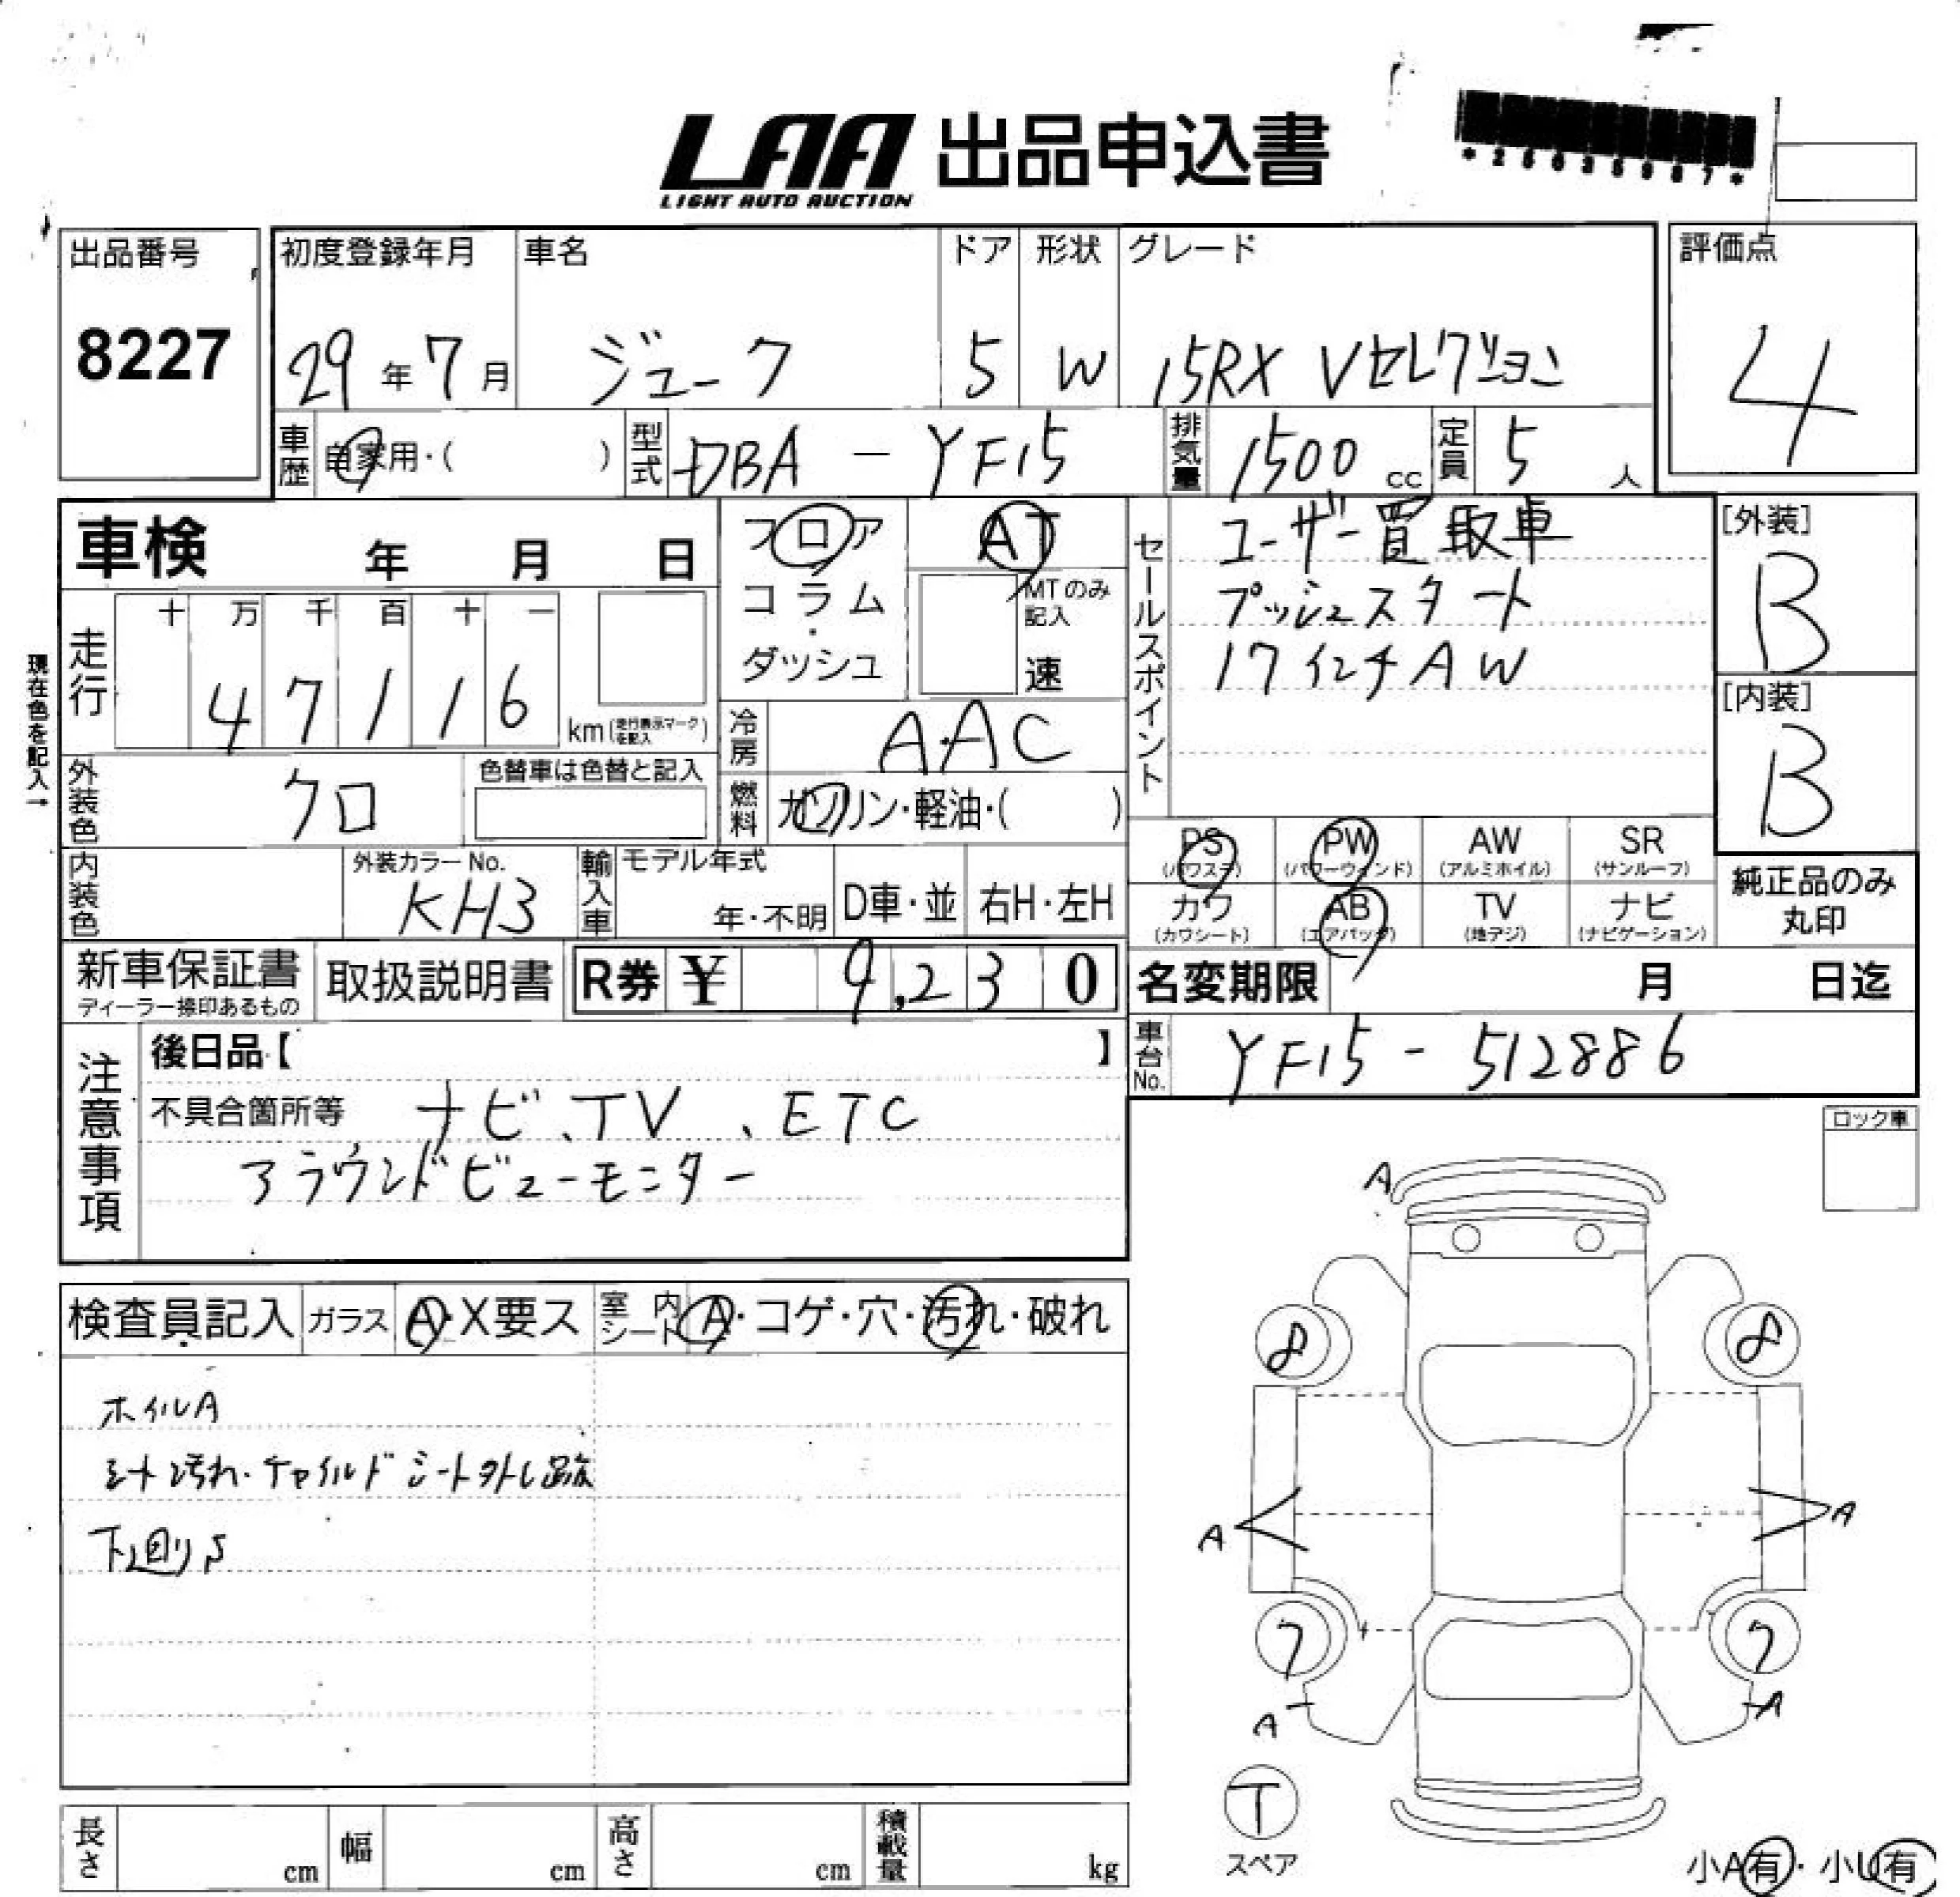 LAA 出品申込書
LIGHT AUTO AUCTION
*26035987*
出品番号
8227
初度登録年月
29年7月
車名
ジューク
ドア
5
形状
W
グレード
15RX Vセレクション
評価点
4
車歴
自家用・( )
型式
DBA - YF15
排気量
1500 cc
定員
5人
車検 年 月 日
フロア
コラム
・
ダッシュ
AT
MTのみ記入
速
セールスポイント
ユーザー買取車
プッシュスタート
17インチAW
[外装]
B
[内装]
B
現在色を記入→
走行
十 万 千 百 十 一
4 7 1 1 6
km(走行表示マークを記入)
冷房
A.AC
外装色
クロ
色替車は色替と記入
燃料
ガソリン・軽油・( )
内装色
外装カラーNo.
KH3
輸入車
モデル年式
年・不明
D車・並
右H・左H
PS
(パワステ)
PW
(パワーウィンド)
AW
(アルミホイル)
SR
(サンルーフ)
カワ
(カワシート)
AB
(エアバッグ)
TV
(地デジ)
ナビ
(ナビゲーション)
純正品のみ
丸印
新車保証書
ディーラー捺印あるもの
取扱説明書
R券 ¥ 9,230
名変期限 月 日迄
車台No.
YF15 - 512886
注意事項
後日品【 】
不具合箇所等 ナビ、TV、ETC
アラウンドビューモニター
ロック車
検査員記入
ガラス A・X要ス
室内シート A・コゲ・穴・汚れ・破れ
ホイルA
シート汚れ・チャイルドシート外し跡
下廻りS
A
8 8
A A
7 7
A A
T
スペア
長さ cm
幅 cm
高さ cm
積載量 kg
小A有・小U有